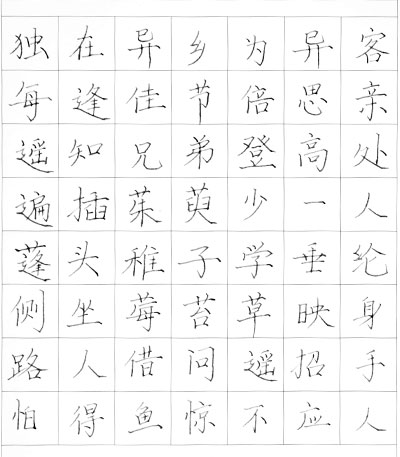 独在异乡为异客
每逢佳节倍思亲
遥知兄弟登高处
遍插茱萸少一人
蓬头稚子学垂纶
侧坐莓苔草映身
路人借问遥招手
怕得鱼惊不应人